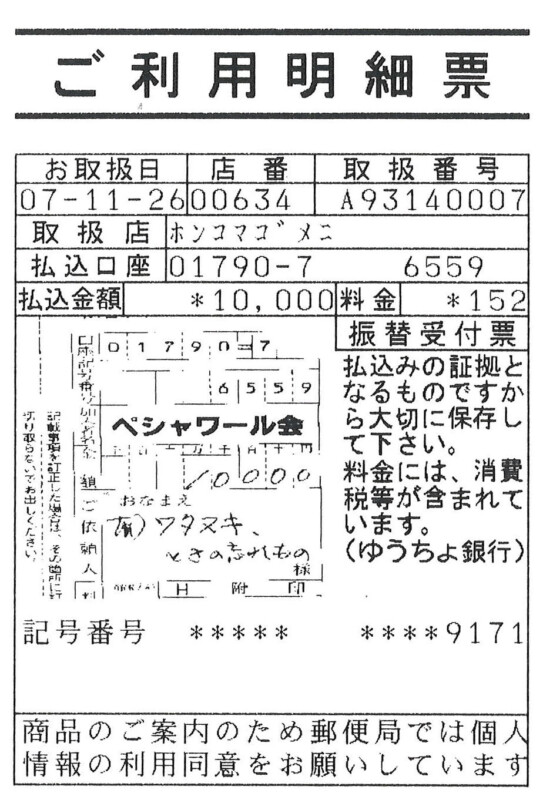 ご利用明細票
お取扱日 店番 取扱番号
07-11-26 00634 A93140007
取扱店 ホンコマゴメニ
払込口座 01790-7 6559
払込金額 *10,000 料金 *152
振替受付票
払込みの証拠と
なるものですか
ら大切に保存し
て下さい。
料金には、消費
税等が含まれて
います。
(ゆうちょ銀行)
口座記号番号
01790=7
6559
加入者名
ペシャワール会
千百十万千百十円
金額
10000
ご依頼人
おなまえ
(有)ワタヌキ、
ときの忘れもの
様
日附印
料
記載事項を訂正した場合は、その箇所に訂
切り取らないでお出しください。
記号番号 ***** ****9171
商品のご案内のため郵便局では個人
情報の利用同意をお願いしています